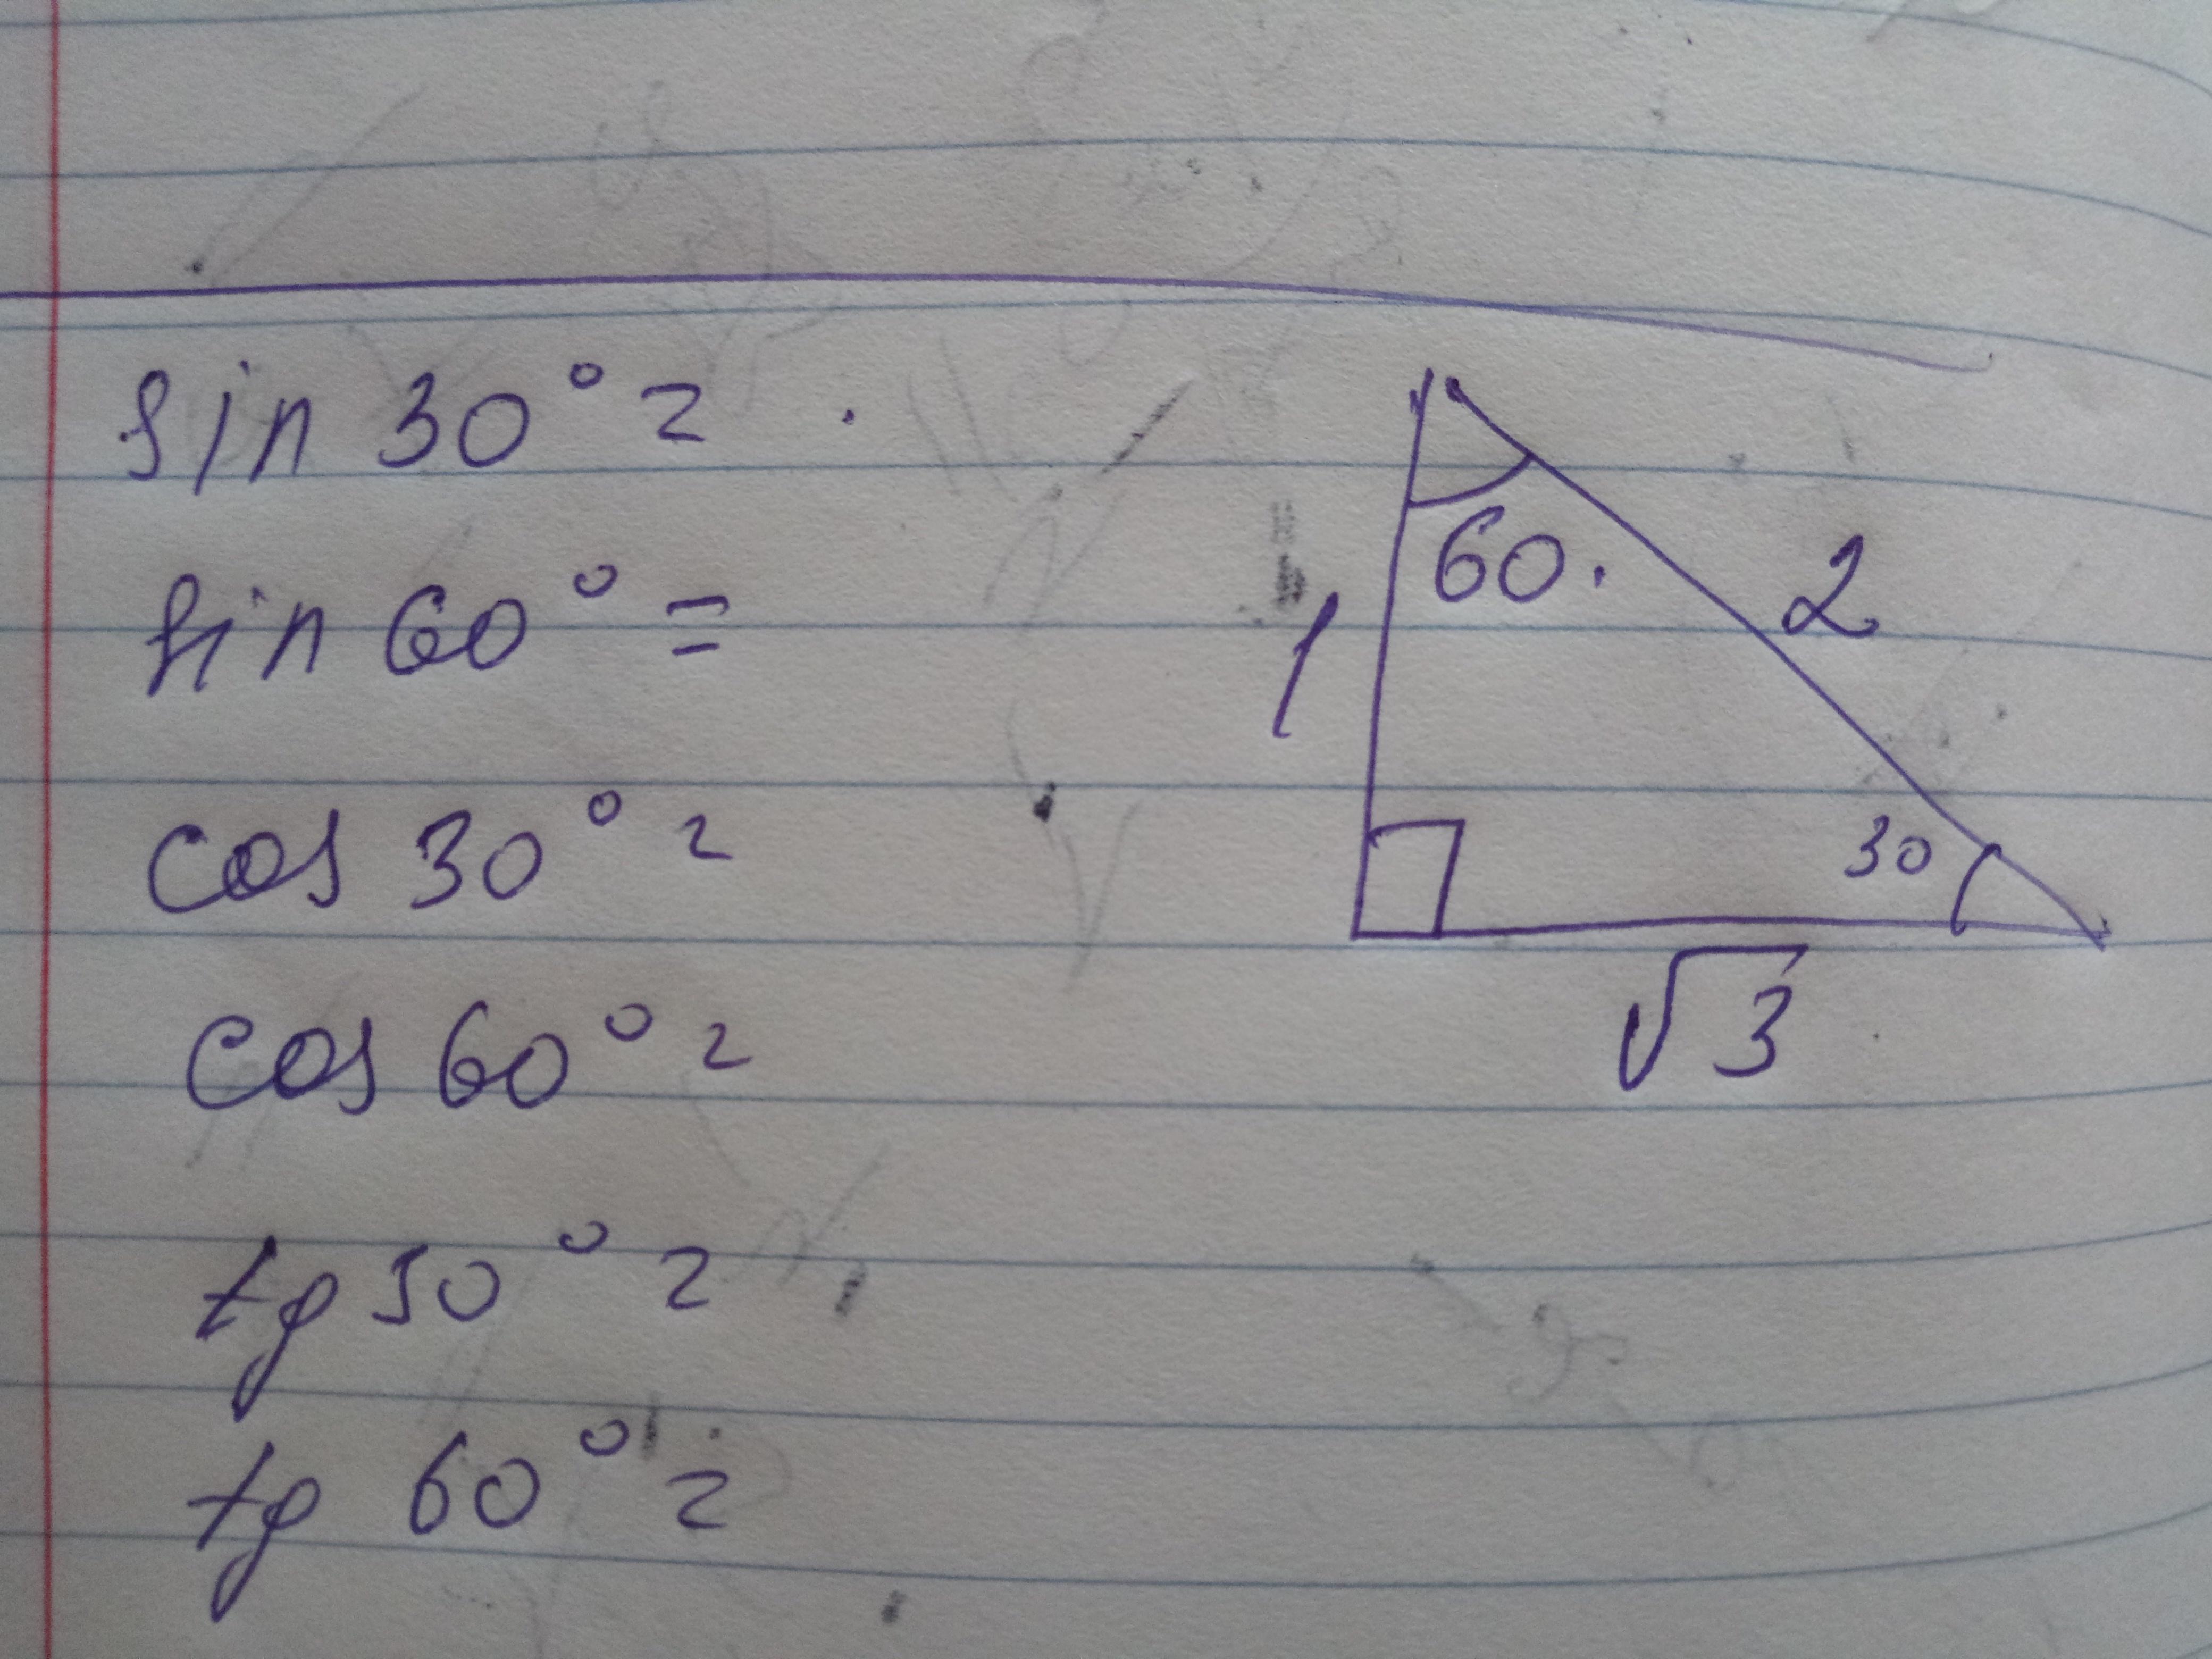 sin 30° =
sin 60° =
cos 30° =
cos 60° =
tg 30° =
tg 60° =
60.
1
2
30
√3